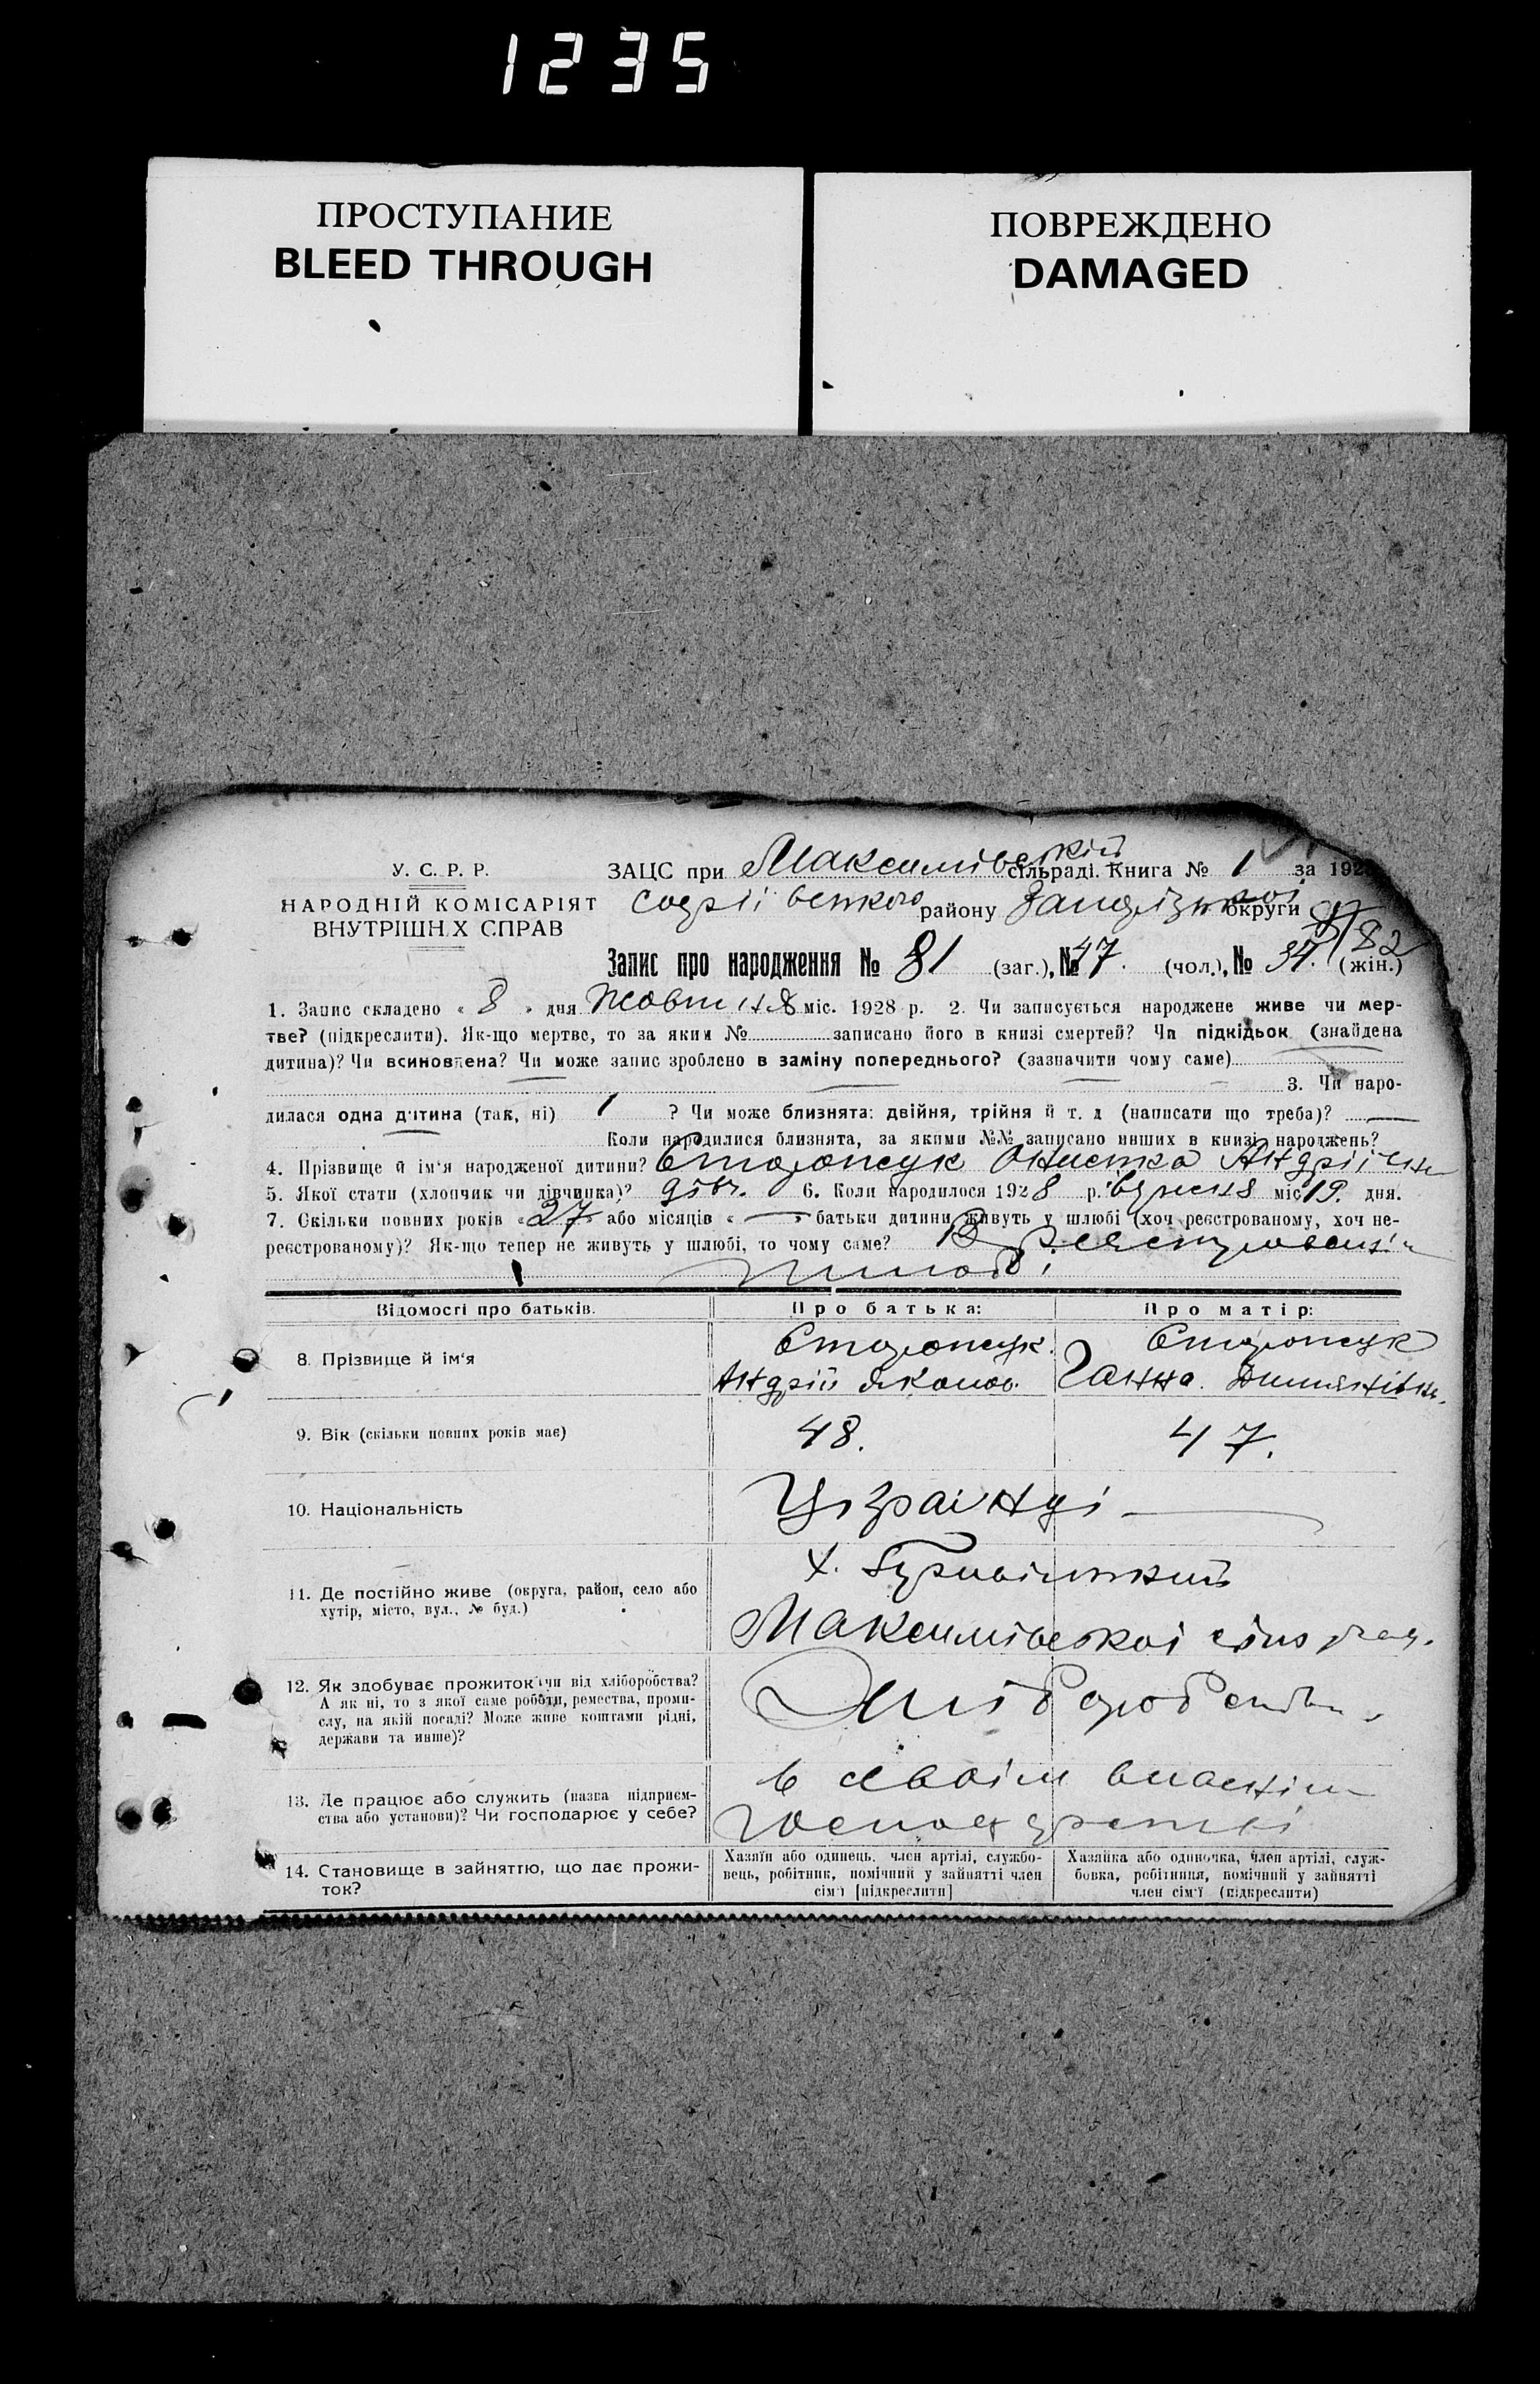 1235
ПРОСТУПАНИЕ
BLEED THROUGH
ПОВРЕЖДЕНО
DAMAGED
У. С. Р. Р.
НАРОДНІЙ КОМІСАРІЯТ
ВНУТРІШН.Х СПРАВ
ЗАЦС при Максимівській сільраді. Книга № 1 за 192
району округи
82
Запис про народження № 81 (заг.), № 47. (чол.), № 34. (жін.)
1. Запис склaдено « 8 » дня Жовтня міс. 1928 р. 2. Чи записується народжене живе чи мер-
тве? (підкреслити). Як-що мертве, то за яким № записано його в книзі смертей? Чи підкідьок (знайдена
дитина)? Чи всиновлена? Чи може запис зроблено в заміну попереднього? (зазначити чому саме)
3. Чи наро-
дилася одна дитина (так, ні) 1 ? Чи може близнята: двійня, трійня й т. д (написати що треба)?
Коли народилися близнята, за якими №№ записано инших в книзі народжень?
4. Прізвище й ім'я народженої дитини?
5. Якої стати (хлопчик чи дівчинка)? дівч. 6. Коли народилося 1928 р. вересня міс 19. дня.
7. Скільки повних років «27» або місяців « — » батьки дитини живуть у шлюбі (хоч реєстрованому, хоч не-
реєстрованому)? Як-що тепер не живуть у шлюбі, то чому саме? В реєстрованім
шлюбі
Відомості про батьків. Про батька: Про матір:
8. Прізвище й ім'я
Андрій Ганна
9. Вік (скільки повних років має) 48. 47.
10. Національність Українці
11. Де постійно живе (округа, район, село або
хутір, місто, вул., № буд.)
х.
Максимівської сільрад.
12. Як здобуває прожиток чи від хліборобства?
А як ні, то з якої саме роботи, ремества, проми-
слу, на якій посаді? Може живе коштами рідні,
держави та инше)?
13. Де працює або служить (назва підприєм-
ства або установи)? Чи господарює у себе?
в своїм власнім
господарстві
14. Становище в зайняттю, що дає прожи-
ток?
Хазяїн або одинець, член артілі, службо-
вець, робітник, помічний у зайнятті член
сім'ї [підкреслити]
Хазяйка або одиночка, член артілі, служ-
бовка, робітниця, помічний у зайнятті
член сім'ї (підкреслити)